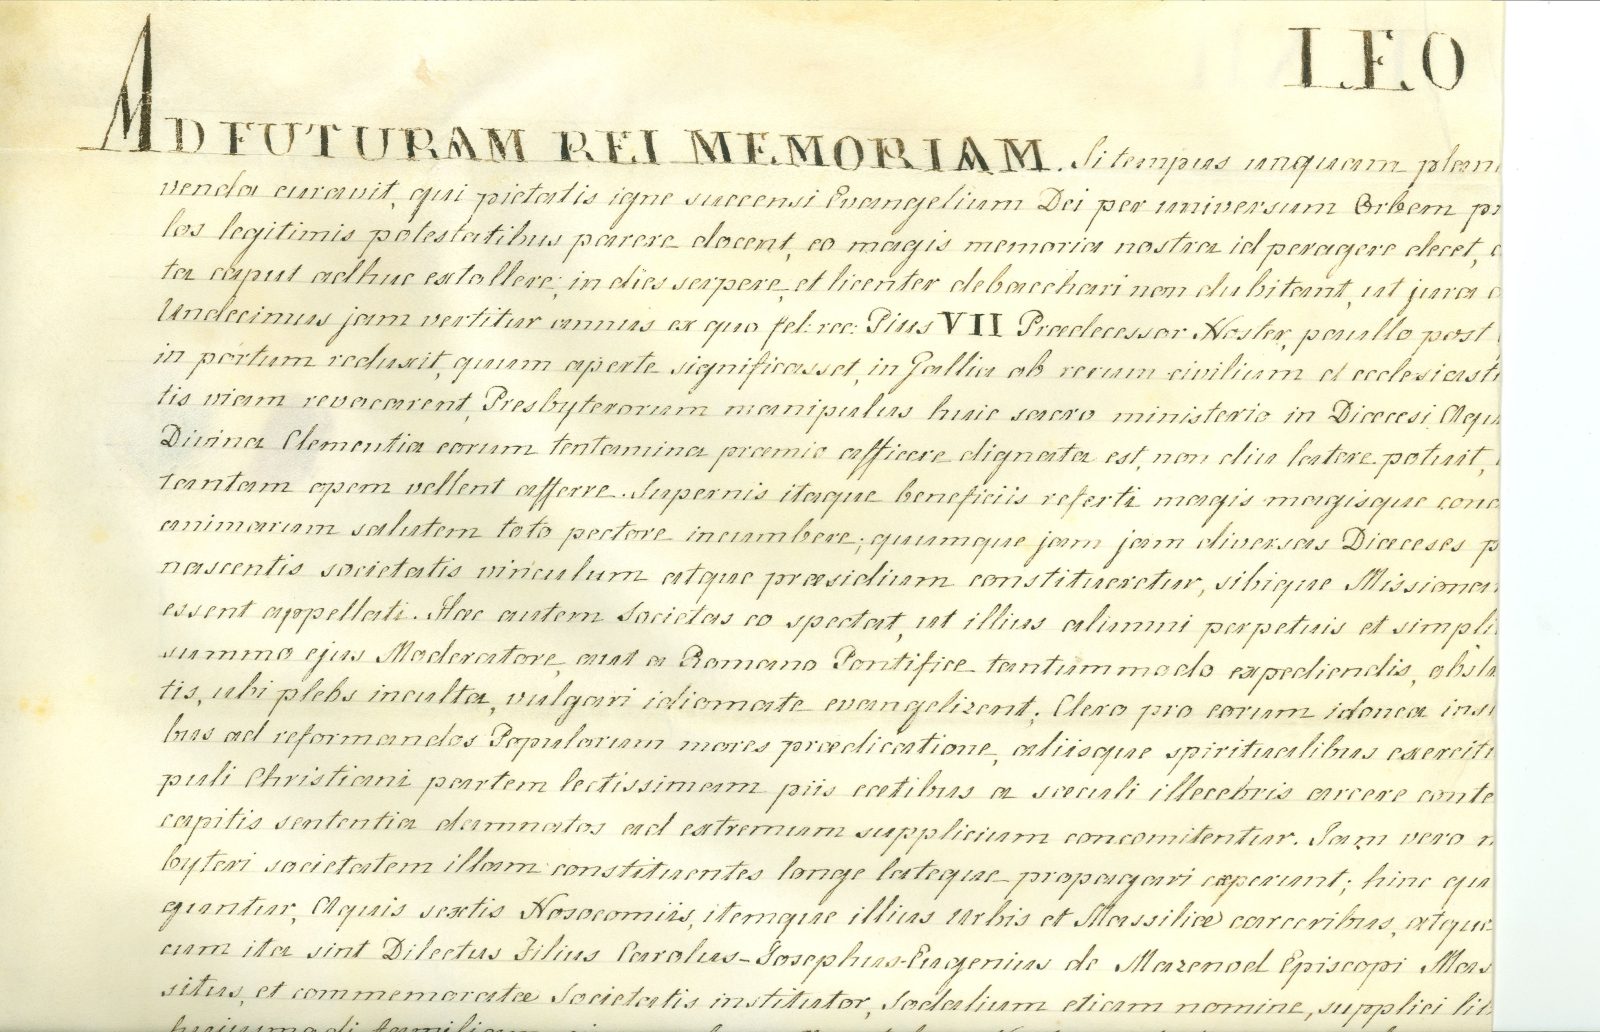 LEO
AD FUTURAM REI MEMORIAM. Si tempus unquam
venda curavit, qui pietatis igne succensi Evangelium Dei per universum Orbem
los legitimis potestatibus parere docent, eo magis memoria nostra id peragere decet,
ta caput adhuc extollere, in dies serpere, et licenter debacchari non dubitant, ut jura
Undecimus jam vertitur annus ex quo fel: rec: Pius VII Prædecessor Noster, paullo post
in portum reduxit, quum aperte significasset, in Gallia ob rerum civilium et
tis viam revocarent, Presbyterorum manipulus huic sacro ministerio in Diœcesi
Divina Clementia eorum tentamina præmio afficere dignata est, non diu latere potuit,
tantam opem vellent afferre. Supernis itaque beneficiis referti magis magisque
animarum salutem toto pectore incumbere; quumque jam jam diversas Diœceses
nascentis societatis vinculum atque præsidium constitueretur, sibique
essent appellati. Hæc autem Societas eo spectat, ut illius alumni perpetuis et
summo ejus Moderatore, aut a Romano Pontifice tantummodo expediendis,
tis, ubi plebs inculta, vulgari idiomate evangelizent; Clero pro eorum idonea
bus ad reformandos Populorum mores prædicatione, aliisque spiritualibus
puli Christiani partem lectissimam piis cœtibus a sæculi illecebris arcere
capitis sententia damnatos ad extremum supplicium concomitentur. Jam vero
byteri societatem illam constituentes longe lateque propagari cœperunt; hinc
guntur, Aquis sextis Nosocomiis, itemque illius Urbis et Massiliæ carceribus, atque
cum ita sint Dilectus Filius Carolus-Josephus-Eugenius de Mazenod Episcopi
situs, et commemoratæ Societatis institutor, Sodalium etiam nomine, supplici
hujusmodi familiam